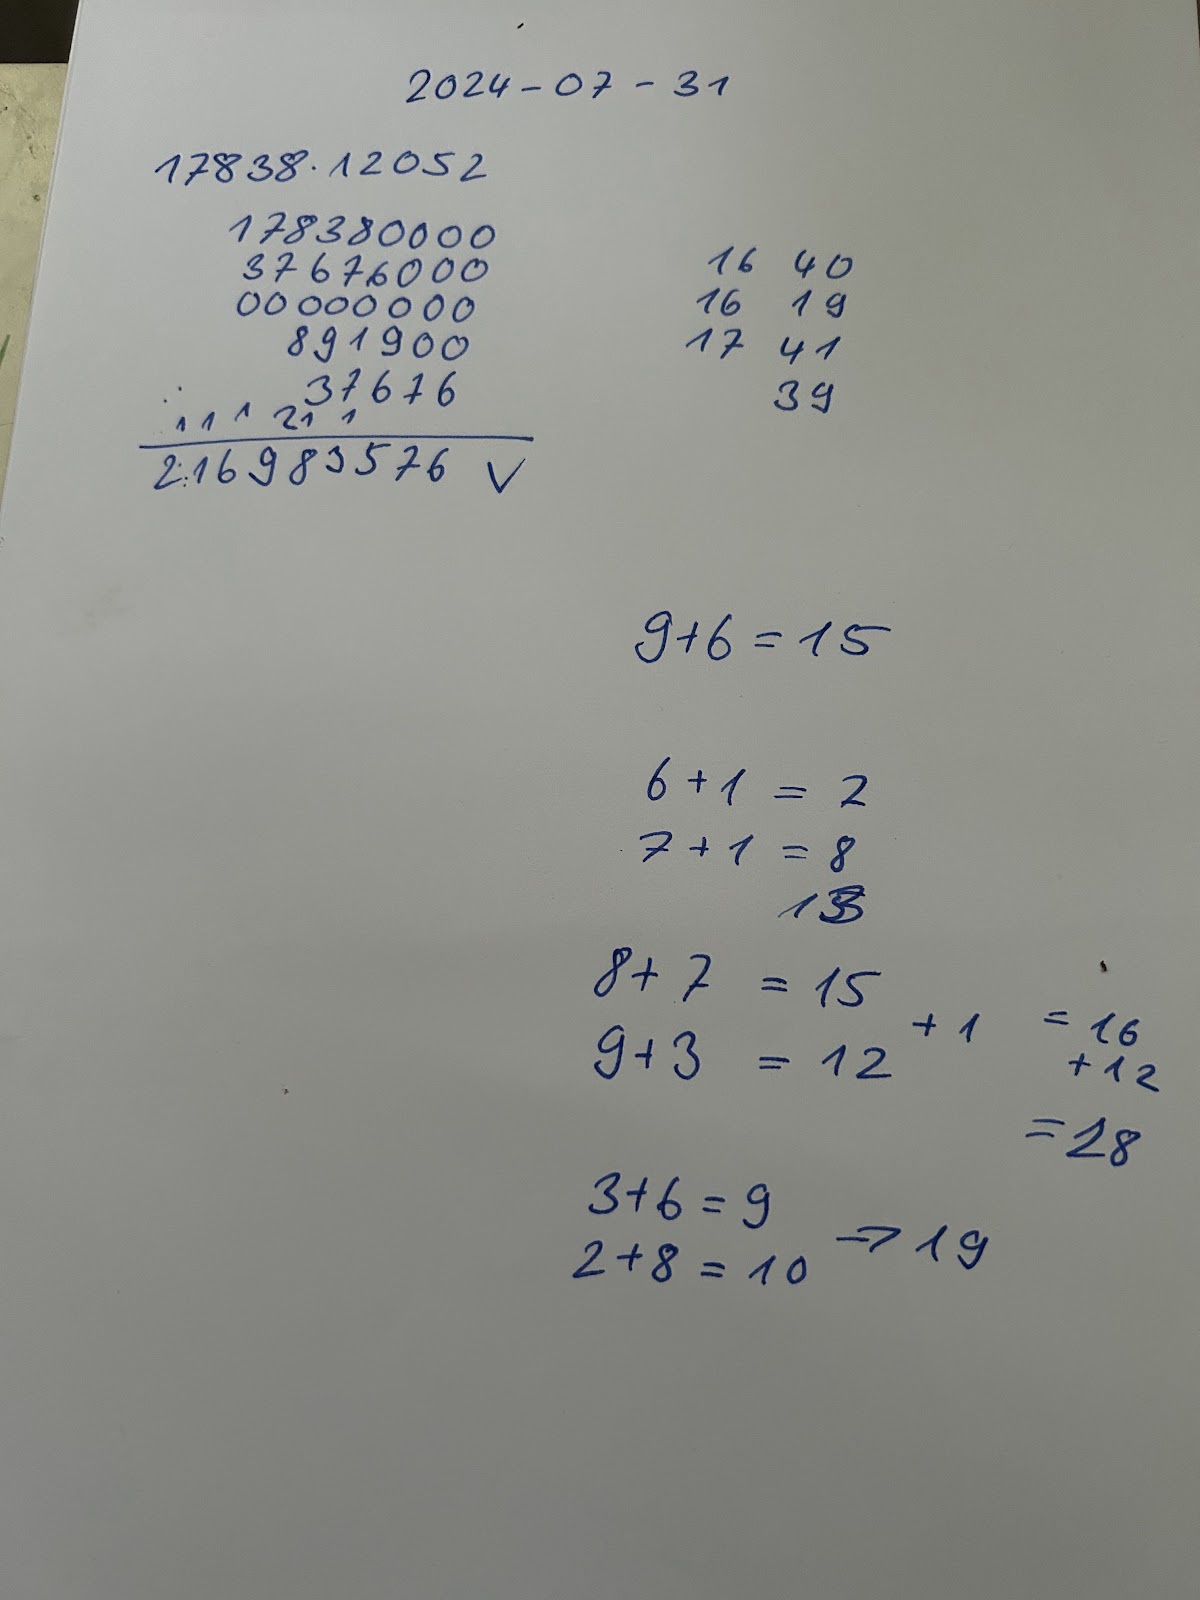 2024-07-31
17838·12052
178380000
37676000
00000000
891900
37676
1 1 1 21 1
216983576 V
16 40
16 19
17 41
39
9+6=15
6+1 = 2
7+1 = 8
8+7 = 15
9+3 = 12 +1 = 16
+12
=28
3+6=9
2+8=10 => 19